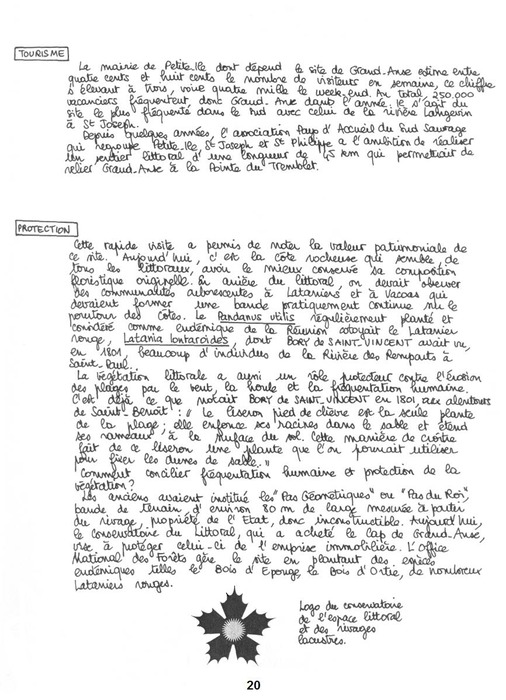 TOURISME
La mairie de Petite-Ile dont dépend le site de Grand-Anse estime entre
quatre cents et huit cents le nombre de visiteurs en semaine, ce chiffre
s'élevant à trois, voire quatre mille le week-end. Au total, 250.000
vacanciers fréquentent, donc Grand-Anse dans l'année. Il s'agit du
site le plus fréquenté dans le Sud avec celui de la rivière Langevin
à St Joseph.
Depuis quelques années, l'association Pays d'Accueil du Sud Sauvage
qui regroupe Petite-Ile, St Joseph et St Philippe a l'ambition de réaliser
un sentier littoral d'une longueur de 45 km qui permettrait de
relier Grand-Anse à la Pointe du Tremblet.
PROTECTION
Cette rapide visite a permis de noter la valeur patrimoniale de
ce site. Aujourd'hui, c'est la côte rocheuse qui semble, de
tous les littoraux, avoir le mieux conservé sa composition
floristique originelle. En arrière du littoral, on devrait observer
des communautés arborescentes à Lataniers et à Vacoas qui
devraient former une bande pratiquement continue sur le
pourtour des côtes. Le Pandanus utilis régulièrement planté et
considéré comme endémique de la Réunion cotoyait le Latanier
rouge, Latania lontaroides, dont BORY de SAINT-VINCENT avait vu,
en 1801, beaucoup d'individus de la Rivière des Remparts à
Saint-Paul.
La végétation littorale a aussi un rôle protecteur contre l'érosion
des plages par le vent, la houle et la fréquentation humaine
C'est déjà ce que notait BORY de SAINT-VINCENT en 1801, aux alentours
de Saint-Benoît : " Le liseron pied de chèvre est la seule plante
de la plage ; elle enfonce ses racines dans le sable et étend
ses rameaux à la surface du sol. Cette manière de croître
fait de ce liseron une plante que l'on pourrait utiliser
pour fixer les dunes de sable. "
Comment concilier fréquentation humaine et protection de la
végétation ?
Les anciens avaient institué les "Pas Géométriques" ou "Pas du Roi",
bande de terrain, d'environ 80 m de large mesurée à partir
du rivage, propriété de l'Etat, donc inconstructible. Aujourd'hui,
le conservatoire du Littoral, qui a acheté le Cap de Grand-Anse,
vise à protéger celui-ci de l'emprise immobilière. L'Office
National des Forêts gère le site en plantant des espèces
endémiques telles le Bois d'Eponge, le Bois d'Ortie, de nombreux
Lataniers rouges.
Logo du conservatoire
de l'espace littoral
et des rivages
lacustres.
20